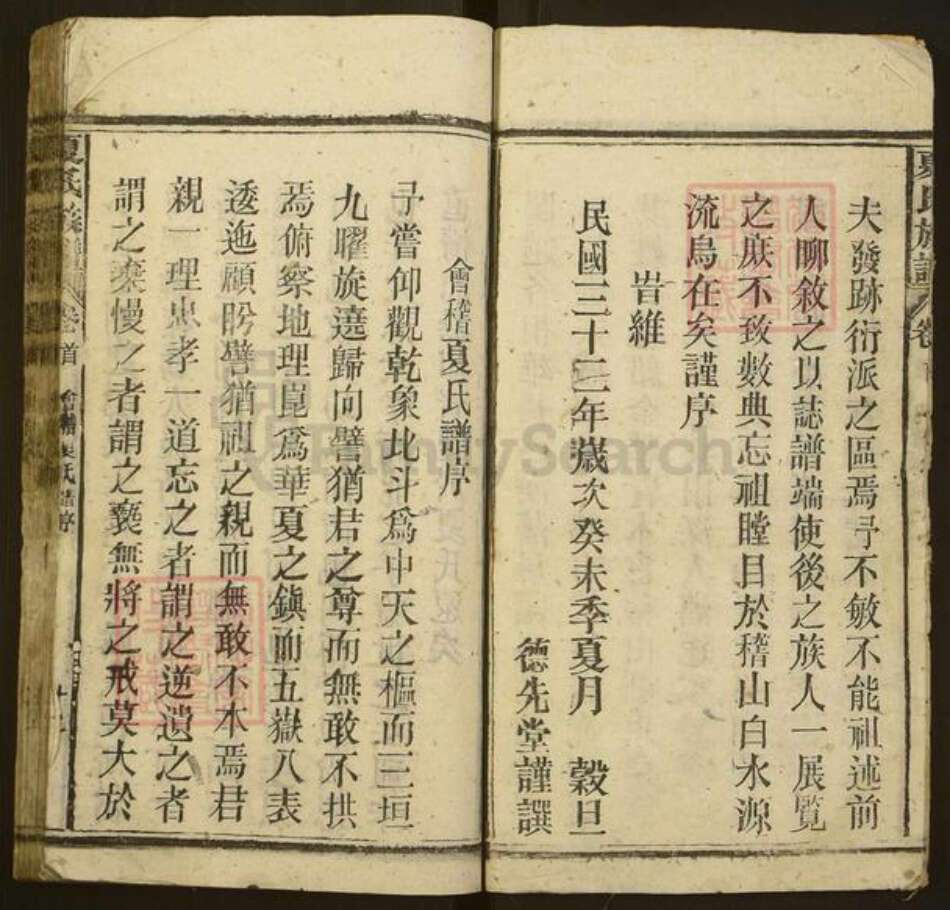 夏氏族譜
卷首
夫發跡衍派之區焉予不敏不能祖述前
人聊敘之以誌譜端使後之族人一展覽
之庶不致數典忘祖瞠目於稽山白水源
流烏在矣謹序
旹維
民國三十二年歲次癸未季夏月 穀旦
德先堂謹譔
會稽夏氏譜序
予嘗仰觀乾象北斗爲中天之樞而三垣
九曜旋遶歸向譬猶君之尊而無敢不拱
焉俯察地理崑爲華夏之鎮而五嶽八表
逶迤顧盼譬猶祖之親而無敢不本焉君
親一理忠孝一道忘之者謂之逆遺之者
謂之棄慢之者謂之褻無將之戒莫大於
夏氏族譜
卷首
會稽夏氏譜序
FamilySearch